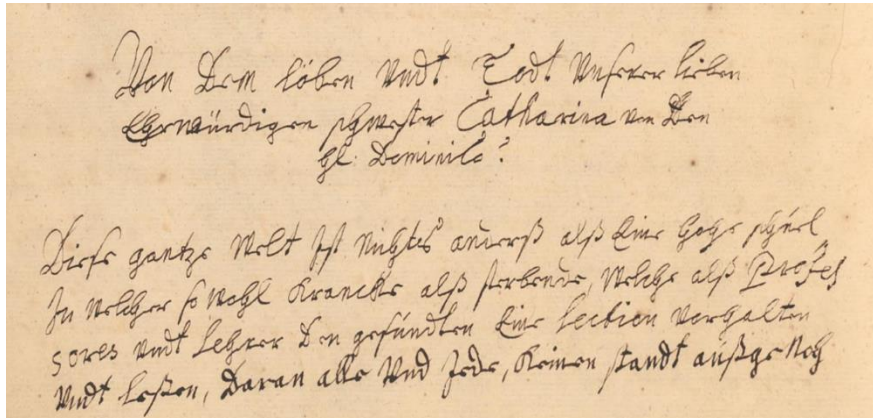 Von Dem löben Vndt Todt Vnserer lieben
Ehrwürdigen schwester Catharina von Den
Hl: Dominico?
Diese gantze Welt Ist Nichtes anderß alß Eine Hohe schuel
In welcher so wohl Krancke alß sterbende, welche alß Profes
sores vndt Lehrer Den gesundten Eine lection vorhalten
Vndt leßen, Daran alle Vnd Jede, Keinen standt außgenoh